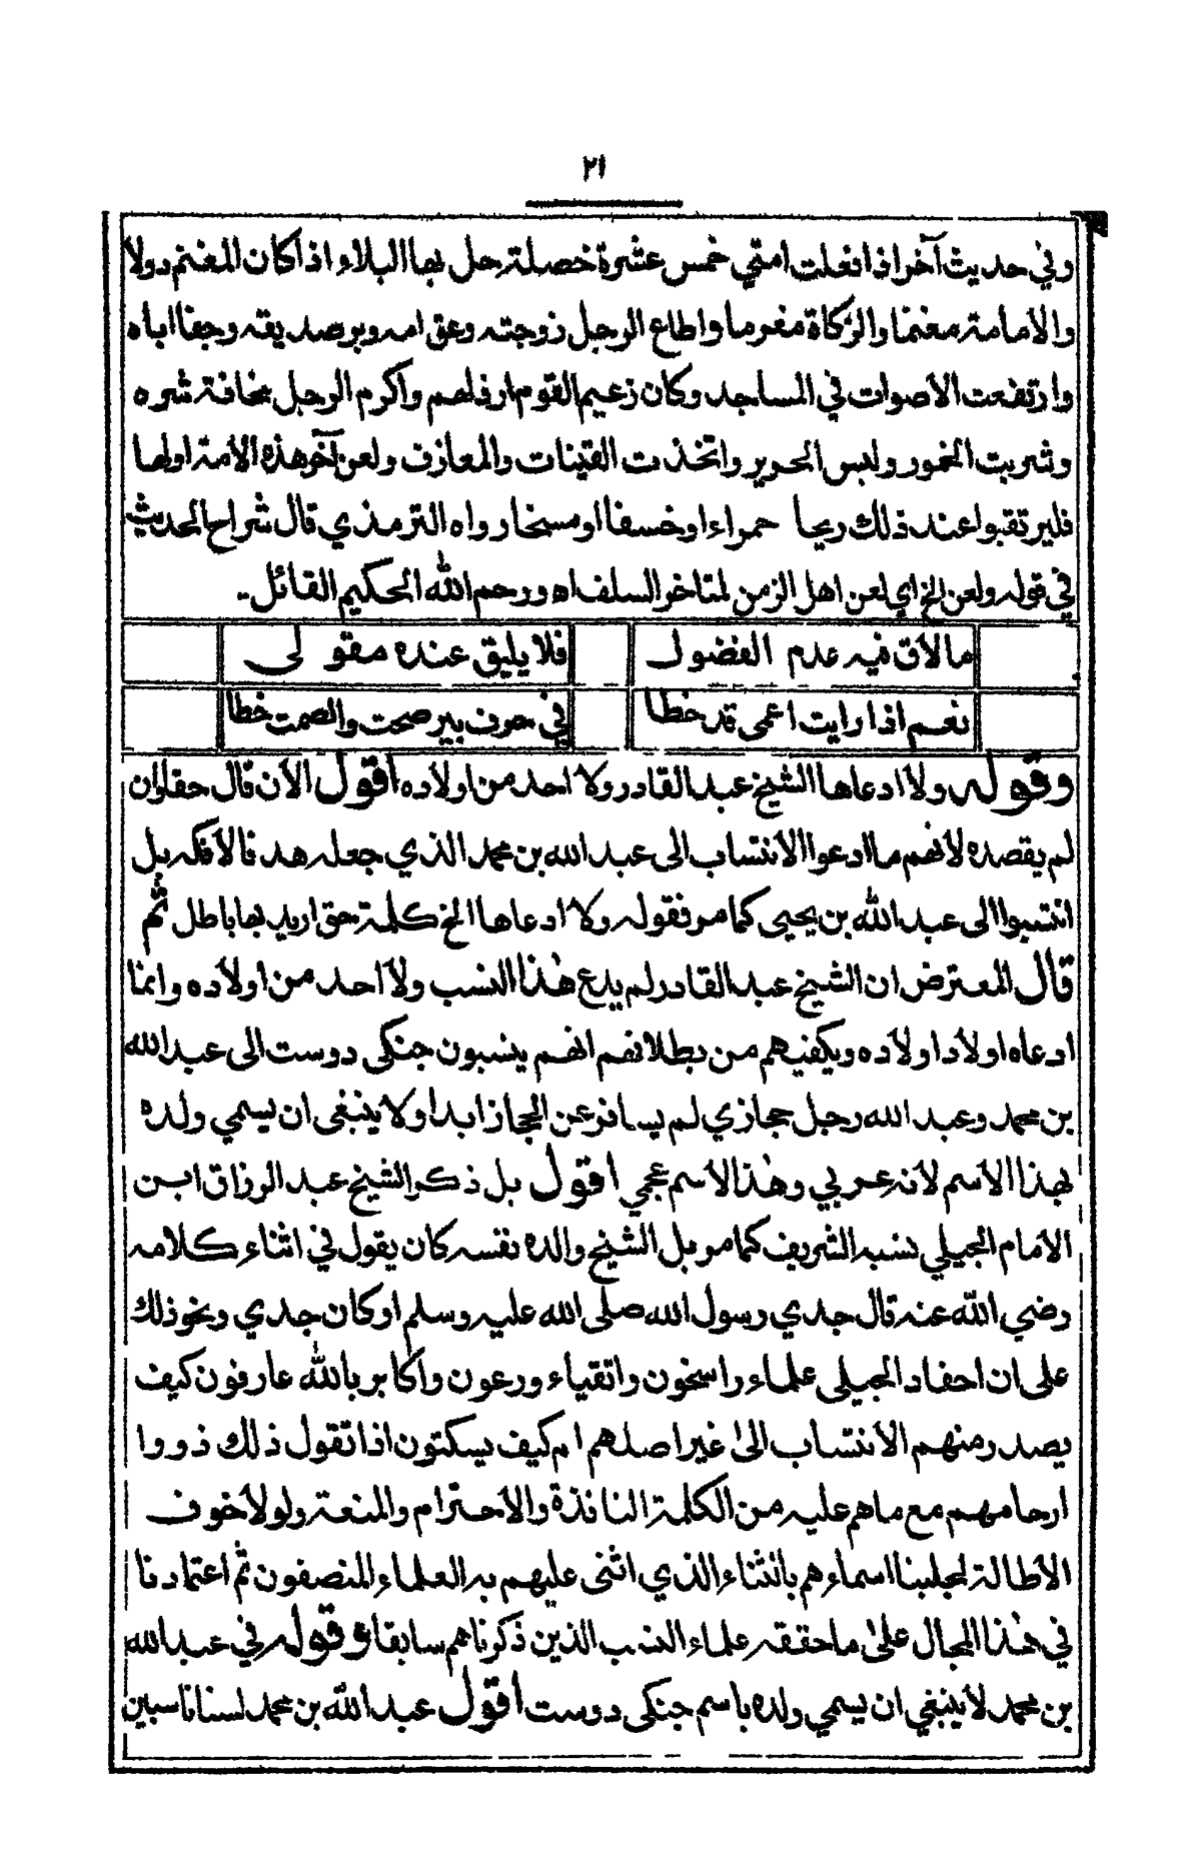 ٢١
وفي حديث آخر اذا فعلت امتي خمس عشرة خصلة حل بها البلاء اذا كان المغنم دولا
والامامة مغنما والزكاة مغرما واطاع الرجل زوجته وعق امه وبر صديقه وجفا اباه
وارتفعت الأصوات في المساجد وكان زعيم القوم ارذلهم واكرم الرجل مخافة شره
وشربت الخمور ولبس الحرير واتخذت القينات والمعازف ولعن آخر هذه الأمة اولها
فليرتقبوا عند ذلك ريحا حمراء او خسفا او مسخا رواه الترمذي قال شراح الحديث
في قوله ولعن الخ اي لعن اهل الزمن المتاخر السلف اه ورحم الله الحكيم القائل..
ما لاق فيه عدم الفضول فلا يليق عنده مقولى
نعم اذا رايت اعمى قد خطا في حرف بير صحت والصمت خطا
وقوله ولا ادعاها الشيخ عبد القادر ولا احد من اولاده اقول الآن قال حقا وإن
لم يقصده لأنهم ما ادعوا الأنتساب الى عبد الله بن محمد الذي جعله هدفا لأفكه بل
انتسبوا الى عبد الله بن يحيى كما مر فقوله ولا ادعاها الخ كلمة حق اريد بها باطل ثم
قال المعترض ان الشيخ عبد القادر لم يدع هذا النسب ولا احد من اولاده وانما
ادعاه اولاد اولاده ويكفيهم من بطلانهم انهم ينسبون جنكى دوست الى عبد الله
بن محمد وعبد الله رجل حجازي لم يسافر عن الحجاز ابدا ولا ينبغى ان يسمي ولده
بهذا الأسم لأنه عربي وهذا الأسم عجمي اقول بل ذكر الشيخ عبد الرزاق ابن
الأمام الجيلي نسبه الشريف كما مر بل الشيخ والده نفسه كان يقول في اثناء كلامه
رضي الله عنه قال جدي رسول الله صلى الله عليه وسلم او كان جدي ونحو ذلك
على ان احفاد الجيلى علماء راسخون واتقياء ورعون واكابر بالله عارفون كيف
يصدر منهم الأنتساب الى غير اصلهم ام كيف يسكتون اذا تقول ذلك ذووا
ارحامهم مع ماهم عليه من الكلمة النافذة والأحترام والمنعة ولولا خوف
الأطالة لجلبنا اسماءهم بالثناء الذي اثنى عليهم به العلماء المنصفون ثم اعتمادنا
في هذا المجال على ما حققه علماء النسب الذين ذكرناهم سابقا وقوله في عبد الله
بن محمد لا ينبغي ان يسمي ولده باسم جنكى دوست اقول عبد الله بن محمد لسنا ناسبين